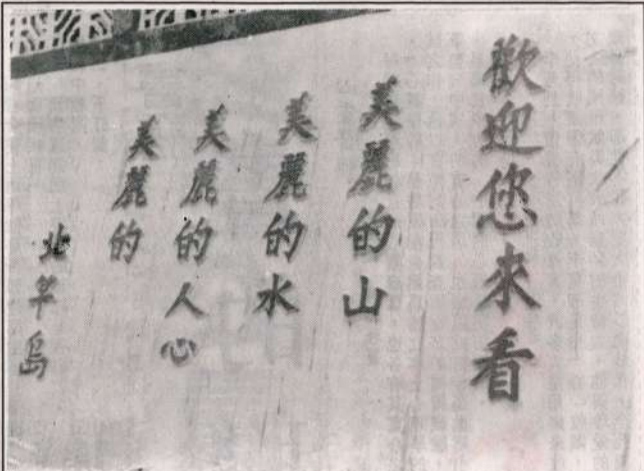 歡迎您來看
美麗的山
美麗的水
美麗的人心
美麗的
北竿島